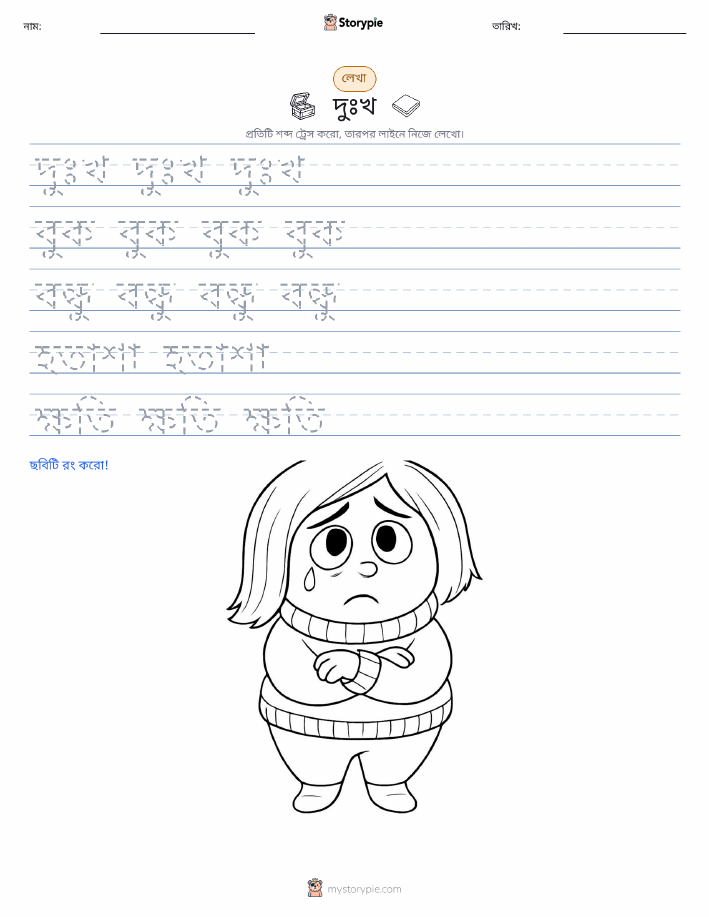 নাম: Storypie তারিখ:
লেখা
দুঃখ
প্রতিটি শব্দ ট্রেস করো, তারপর লাইনে নিজে লেখো।
দুঃখ দুঃখ দুঃখ
বুক বুক বুক বুক
বন্ধু বন্ধু বন্ধু বন্ধু
হতাশা হতাশা
ক্ষতি ক্ষতি ক্ষতি
ছবিটি রং করো!
mystorypie.com